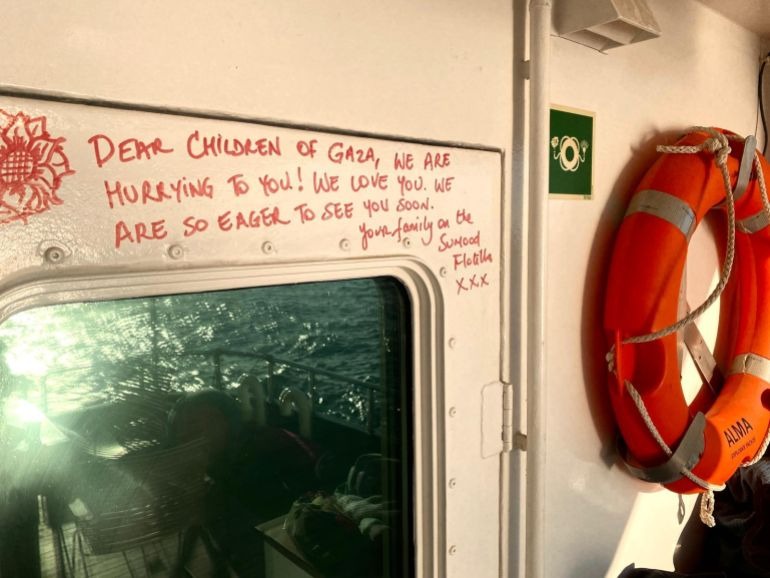 DEAR CHILDREN OF GAZA, WE ARE
HURRYING TO YOU! WE LOVE YOU. WE
ARE SO EAGER TO SEE YOU SOON.
your family on the
Sumood
Flotilla
xxx
ALMA